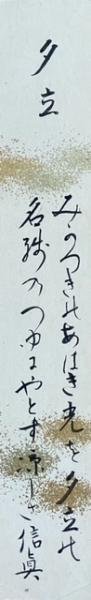 夕立
みかつきのあはき光を夕立の
名残のつゆにやとす涼しさ 信眞